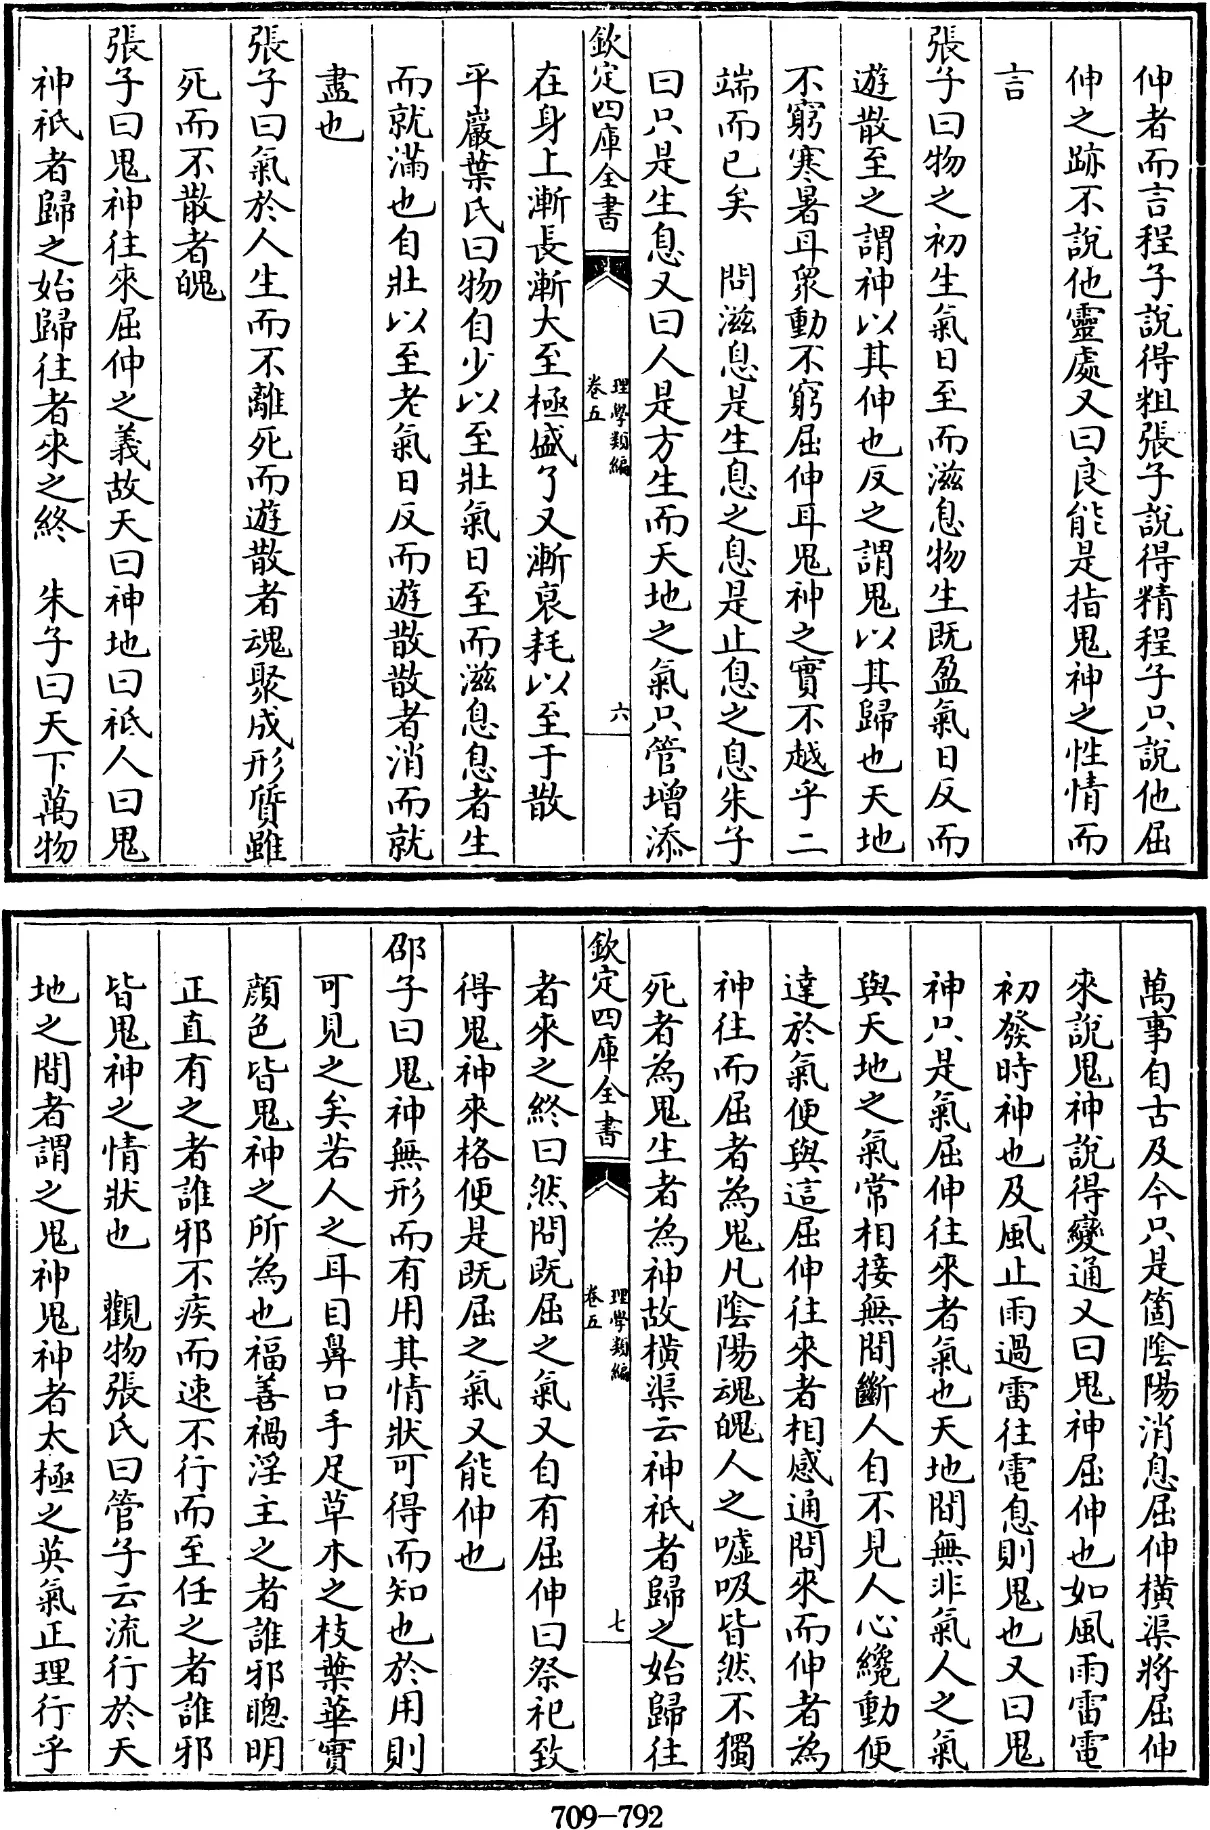 伸者而言程子說得粗張子說得精程子只說他屈
伸之跡不說他靈處又曰良能是指鬼神之性情而
言
張子曰物之初生氣日至而滋息物生既盈氣日反而
遊散至之謂神以其伸也反之謂鬼以其歸也天地
不窮寒暑耳衆動不窮屈伸耳鬼神之實不越乎二
端而已矣　問滋息是生息之息是止息之息朱子
曰只是生息又曰人是方生而天地之氣只管增添
欽定四庫全書
理學類編
卷五
六
在身上漸長漸大至極盛了又漸衰耗以至于散
平巖葉氏曰物自少以至壯氣日至而滋息息者生
而就滿也自壯以至老氣日反而遊散散者消而就
盡也
張子曰氣於人生而不離死而遊散者魂聚成形質雖
死而不散者魄
張子曰鬼神往來屈伸之義故天曰神地曰祗人曰鬼
神祇者歸之始歸往者來之終　朱子曰天下萬物
萬事自古及今只是箇陰陽消息屈伸橫渠將屈伸
來說鬼神說得變通又曰鬼神屈伸也如風雨雷電
初發時神也及風止雨過雷往電息則鬼也又曰鬼
神只是氣屈伸往來者氣也天地間無非氣人之氣
與天地之氣常相接無間斷人自不見人心纔動便
達於氣便與這屈伸往來者相感通問來而伸者為
神往而屈者為鬼凡陰陽魂魄人之噓吸皆然不獨
死者為鬼生者為神故橫渠云神祇者歸之始歸往
欽定四庫全書
理學類編
卷五
七
者來之終曰然問既屈之氣又自有屈伸曰祭祀致
得鬼神來格便是既屈之氣又能伸也
邵子曰鬼神無形而有用其情狀可得而知也於用則
可見之矣若人之耳目鼻口手足草木之枝葉華實
顏色皆鬼神之所為也福善禍淫主之者誰邪聰明
正直有之者誰邪不疾而速不行而至任之者誰邪
皆鬼神之情狀也　觀物張氏曰管子云流行於天
地之間者謂之鬼神鬼神者太極之英氣正理行乎
709-792